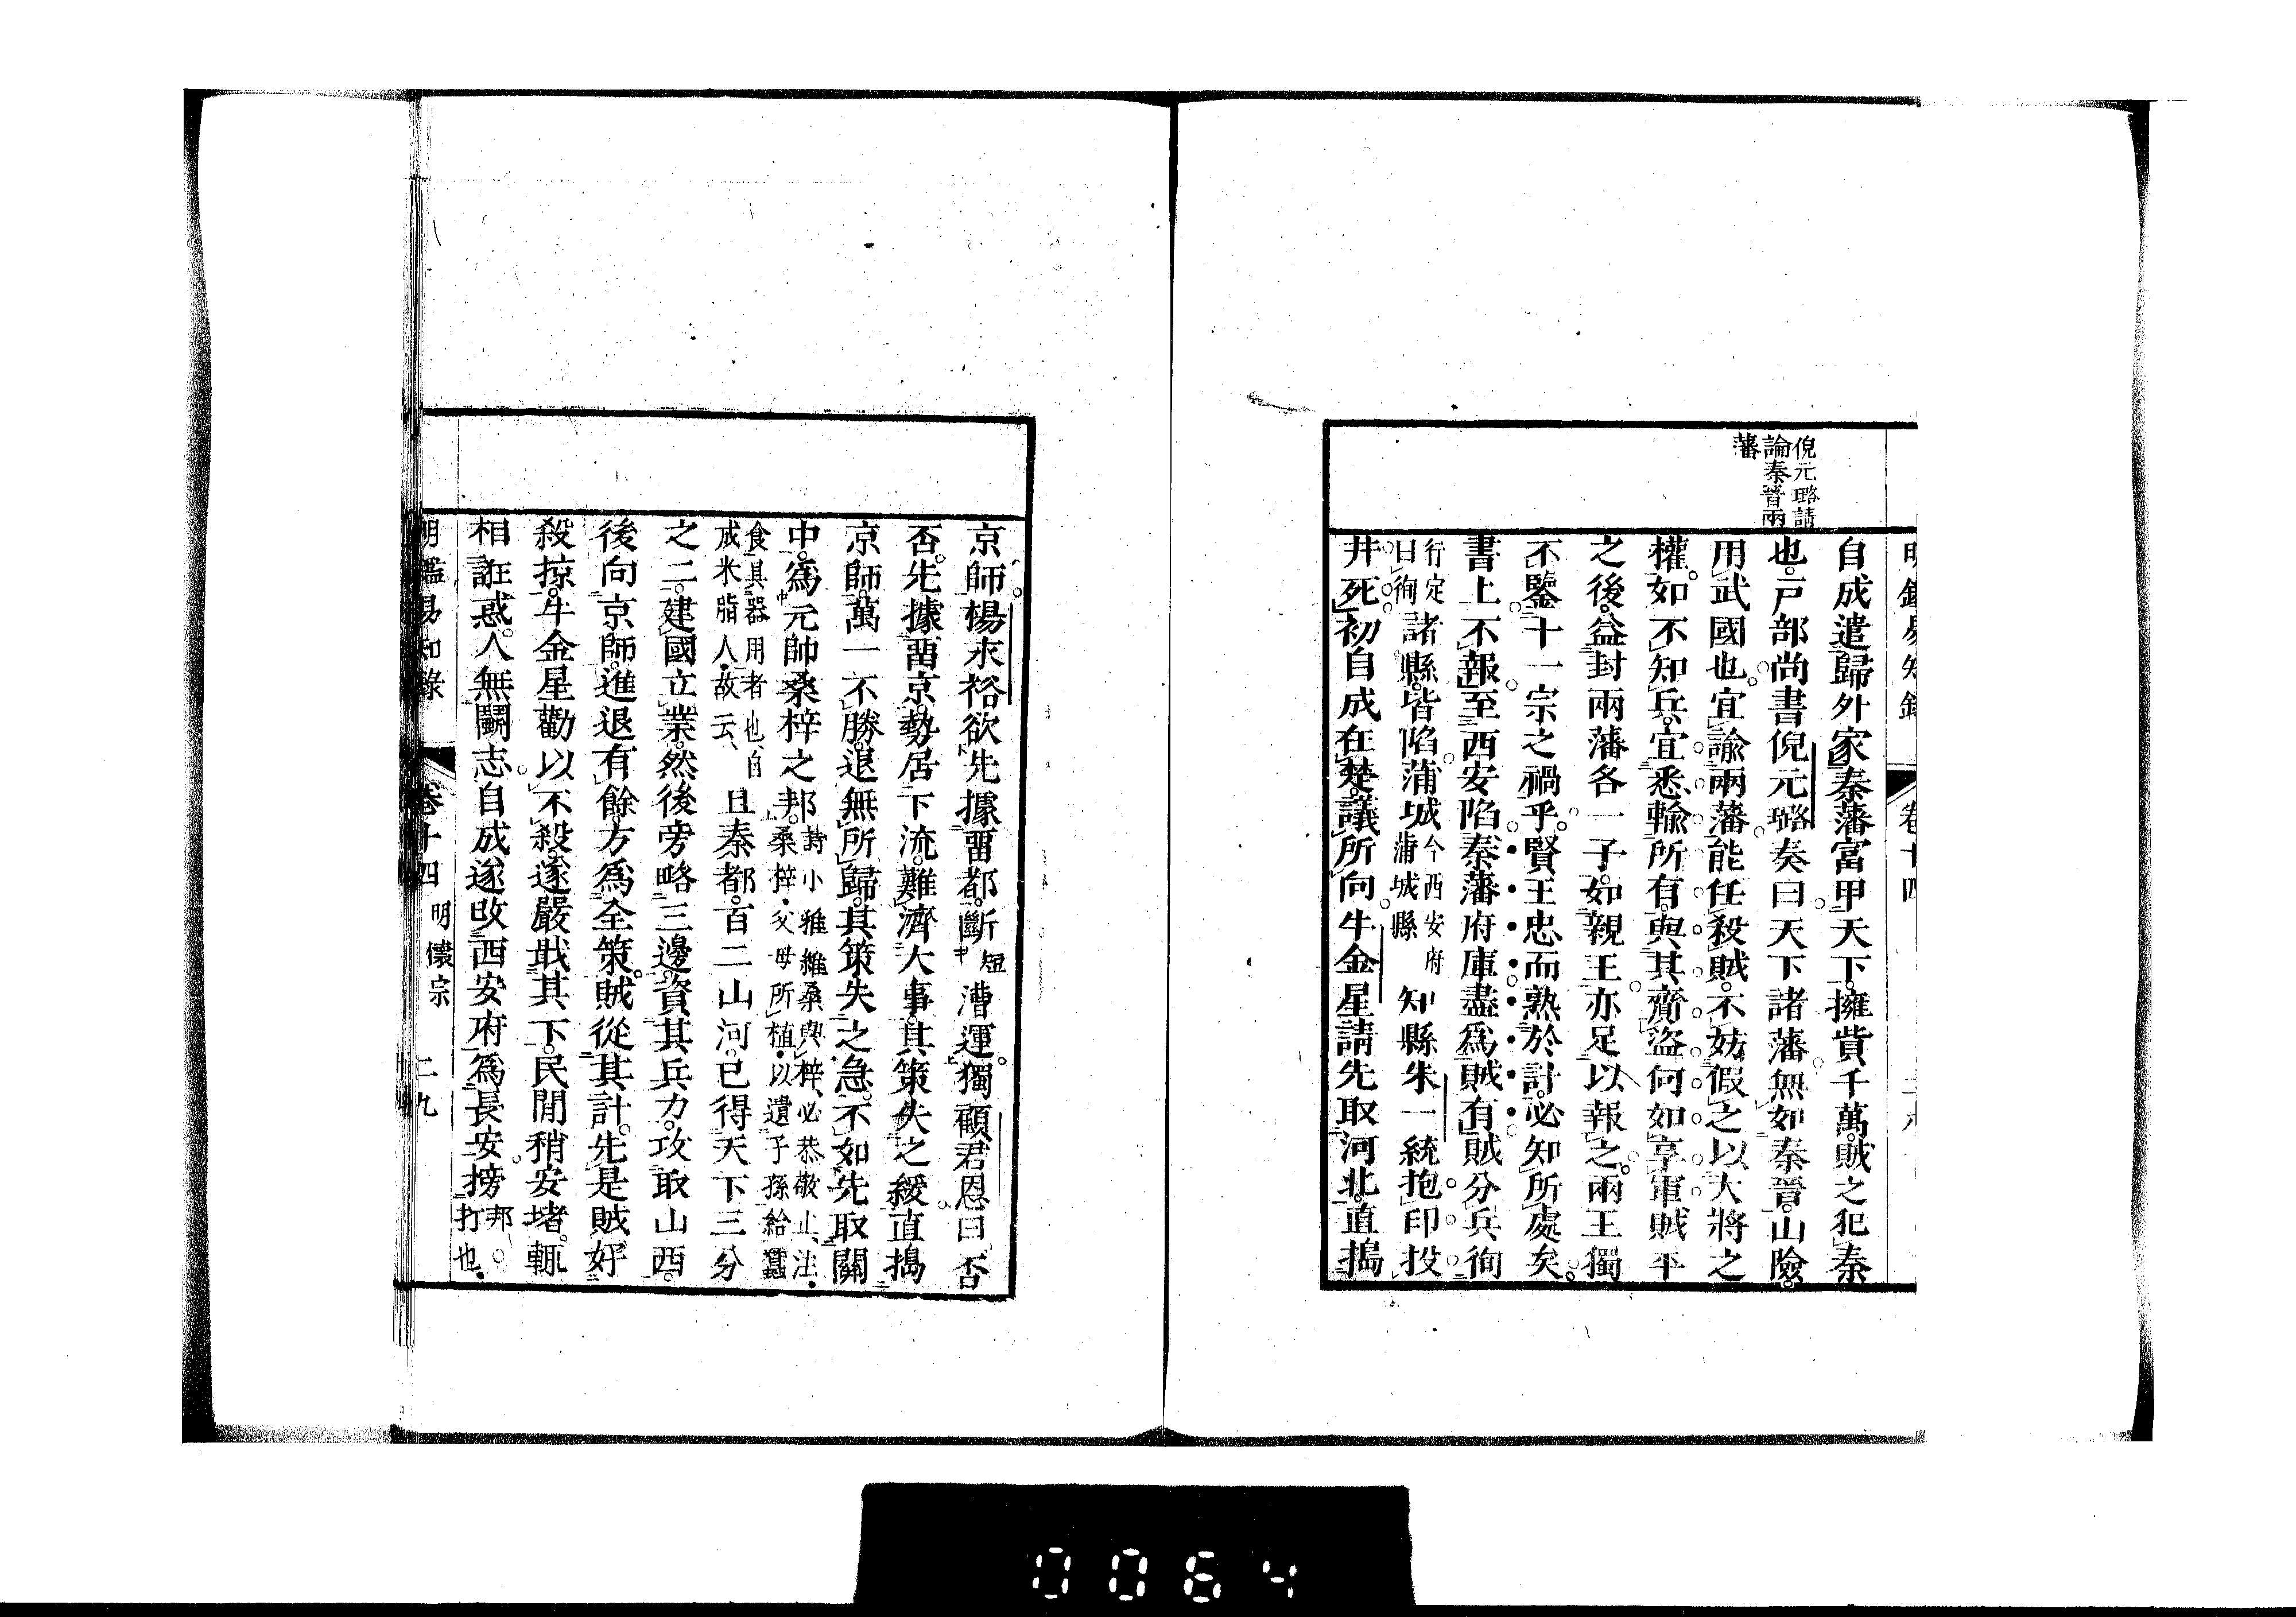 倪元璐請
論秦晉兩
藩
自成遣歸外家秦藩富甲天下擁貲千萬賊之犯秦
也戸部尚書倪元璐奏曰天下諸藩無如秦晉山險
用武國也宜諭兩藩能任殺賊不妨假之以大將之
權如不知兵宜悉輸所有與其齎盜何如享軍賊平
之後益封兩藩各一子如親王亦足以報之兩王獨
不鑒十一宗之禍乎賢王忠而熟於計必知所處矣
書上不報至西安陷秦藩府庫盡爲賊有賊分兵徇
行定曰徇諸縣皆陷蒲城今西安府蒲城縣知縣朱一統抱印投
井死初自成在楚議所向牛金星請先取河北直搗
京師楊永裕欲先據畱都斷短漕運獨顧君恩曰否
否先據畱京勢居下流難濟大事其策失之緩直搗
京師萬一不勝退無所歸其策失之急不如先取關
中爲元帥桑梓之邦詩小雅維桑與梓必恭敬止注桑梓父母所植以遺子孫給蠶
食具器用者也自成米脂人故云且秦都百二山河已得天下三分
之二建國立業然後旁略三邊資其兵力攻取山西
後向京師進退有餘方爲全策賊從其計先是賊好
殺掠牛金星勸以不殺遂嚴戢其下民閒稍安堵輒
相誑惑人無鬭志自成遂改西安府爲長安搒邦打也
明鑑易知錄 卷十四 明懷宗 二九
0064